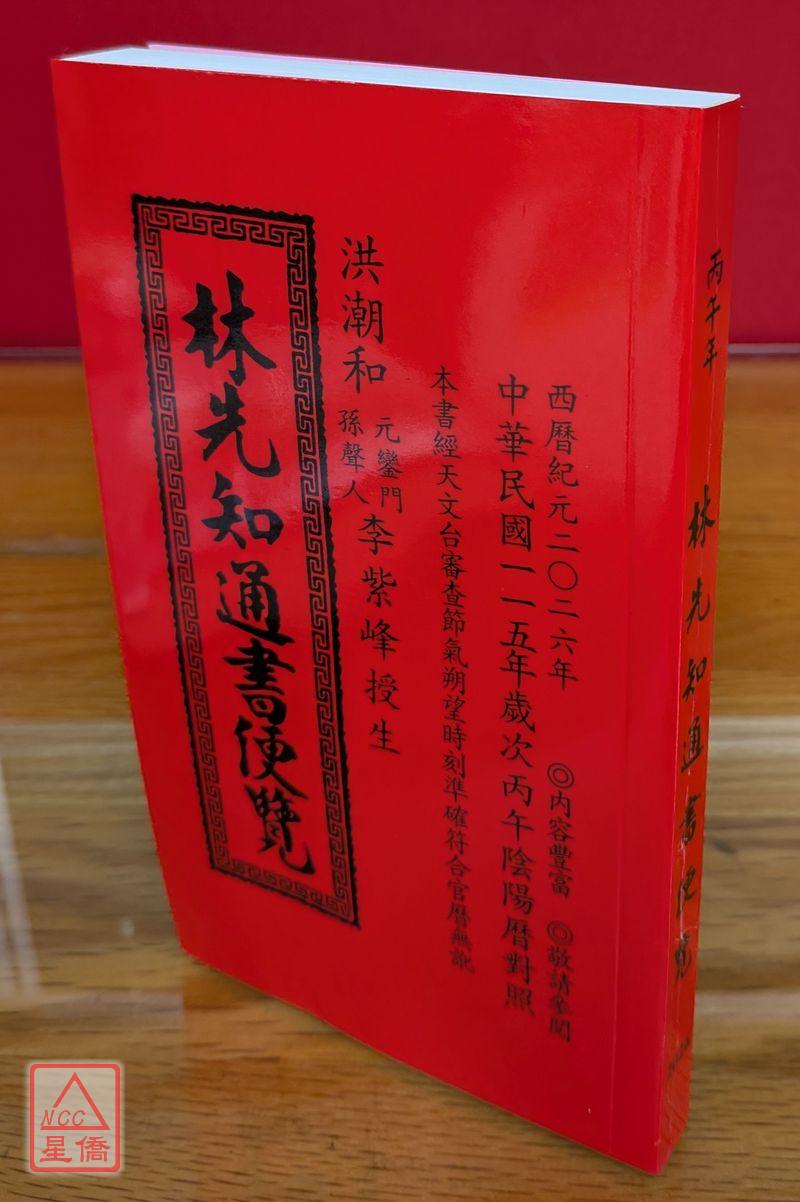 西曆紀元二〇二六年 ◎內容豐富 ◎敬請參閱
中華民國一一五年歲次丙午陰陽曆對照
本書經天文台審查節氣朔望時刻準確符合官曆無訛
洪潮和 元鑾門 孫聲人 李紫峰授生
林先知通書便覽
丙午年 林先知通書便覽
NCC
星僑